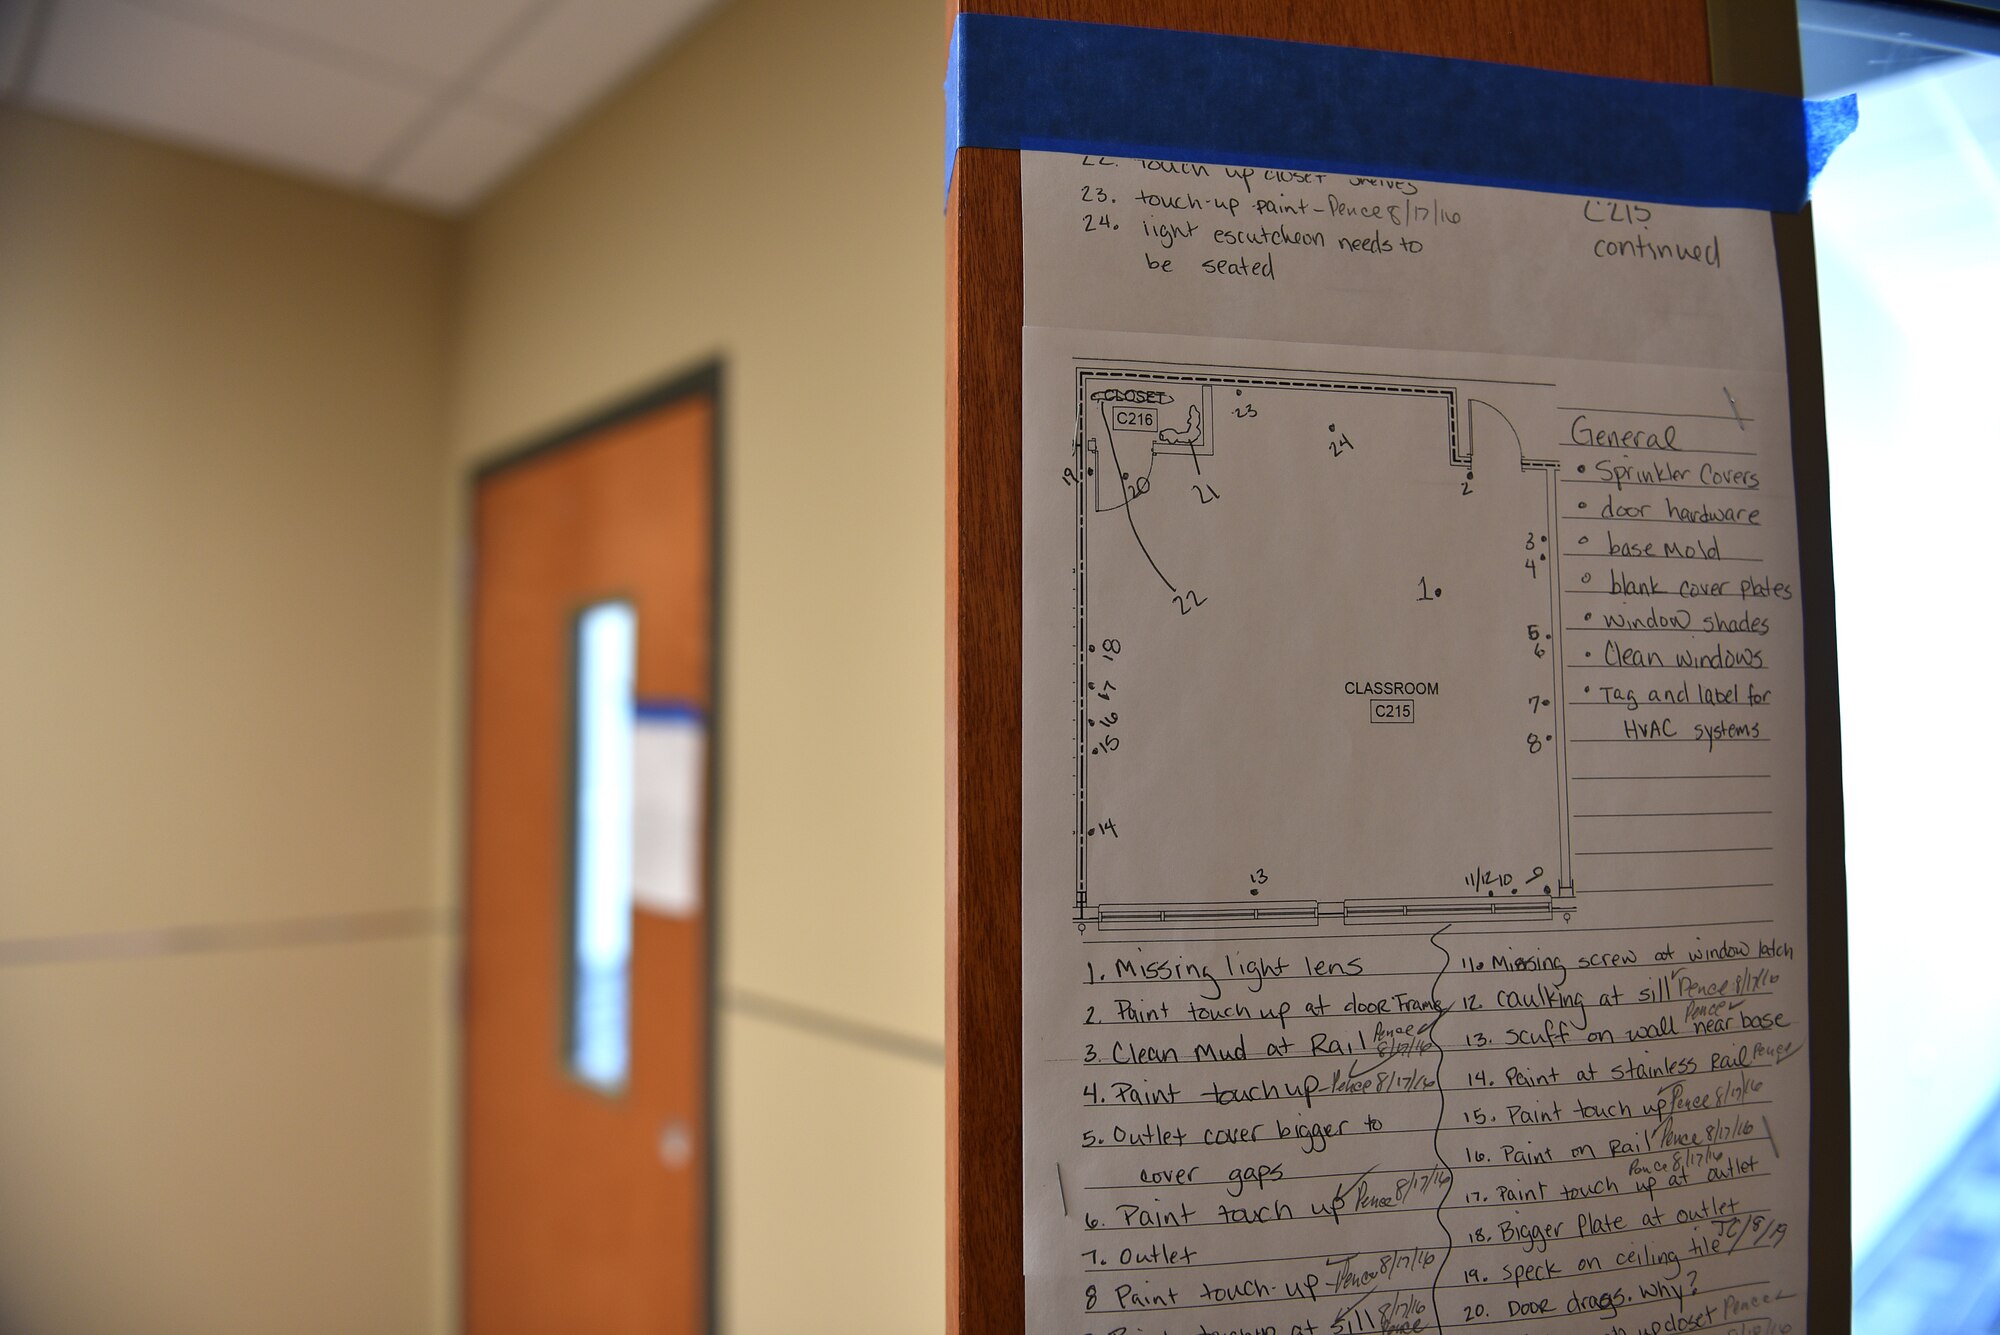 22. touch up closet shelves
23. touch-up paint - Pence 8/17/16
24. light escutcheon needs to
be seated
C215
continued
CLOSET
C216
23
24
19
20
21
2
22
3
4
1.
5
6
7
8
18
17
16
15
14
13
11/12
10
9
CLASSROOM
C215
General
• Sprinkler Covers
• door hardware
• base mold
• blank cover plates
• window shades
• Clean windows
• Tag and label for
HVAC systems
1. Missing light lens
2. Paint touch up at door Frame
3. Clean Mud at Rail Pence 8/17/16
4. Paint touch up - Pence 8/17/16
5. Outlet cover bigger to
cover gaps
6. Paint touch up Pence 8/17/16
7. Outlet
8 Paint touch-up - Pence 8/17/16
touch up at sill 8/17/16 Pence
11. Missing screw at window latch
12. caulking at sill Pence 8/17/16
13. Scuff on wall near base Pence
14. Paint at stainless Rail Pence
15. Paint touch up Pence 8/17/16
16. Paint on Rail Pence 8/17/16
17. Paint touch up at outlet Pence 8/17/16
18. Bigger Plate at outlet
19. Speck on ceiling tile
20. Door drags. Why?
up closet Pence